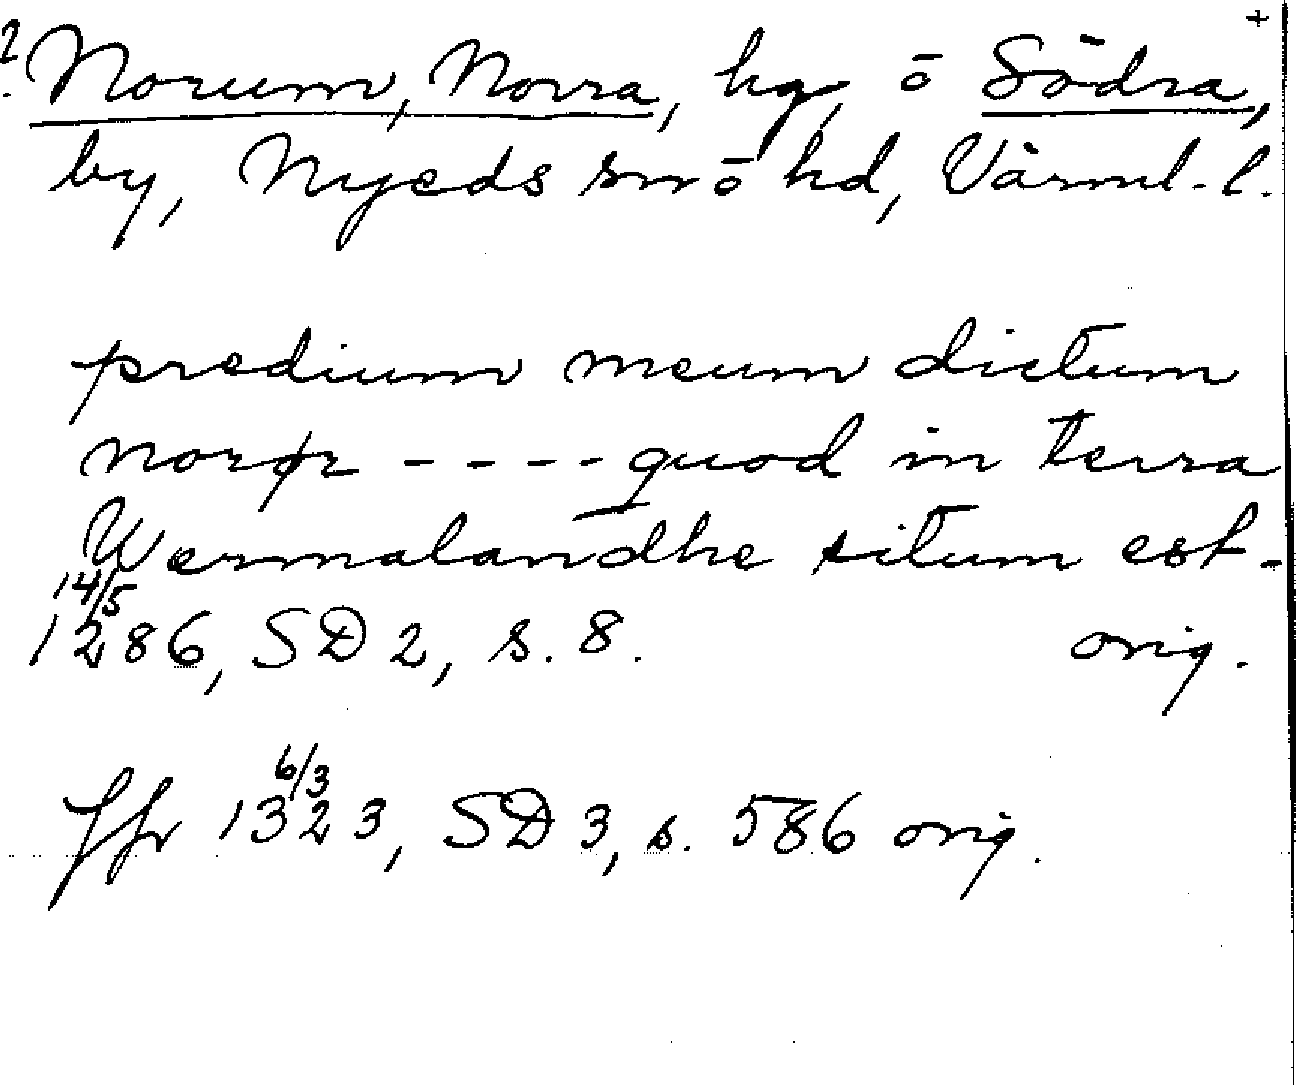 +
? Norum, Norra, hg, o Södra,
by, Nyeds sn o hd, Värml. l.
predium meum dictum
norør - - - - quod in terra
Wermalandhe situm est -
14/5
1286, SD 2, s. 8. orig.
6/3
Jfr 1323, SD 3, s. 586 orig.